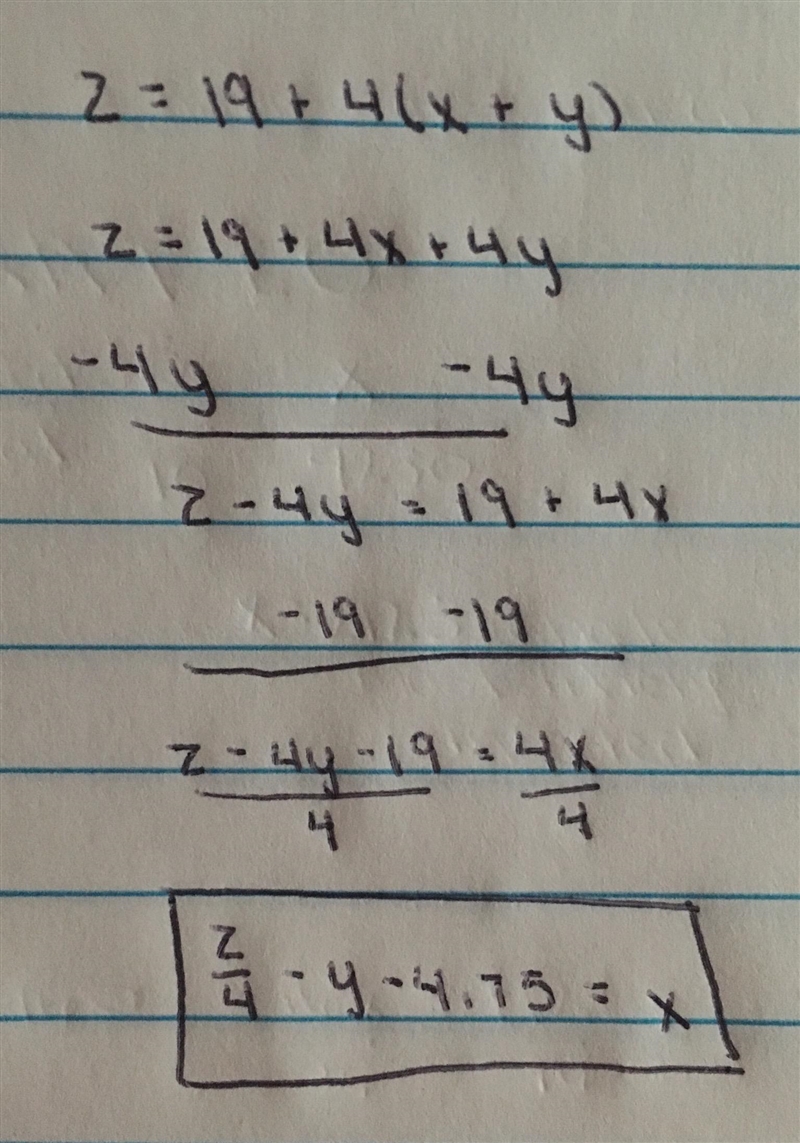 z = 19 + 4(x + y)
z = 19 + 4x + 4y
-4y -4y
z - 4y = 19 + 4x
-19 -19
z - 4y - 19 = 4x
4 4
z/4 - y - 4.75 = x